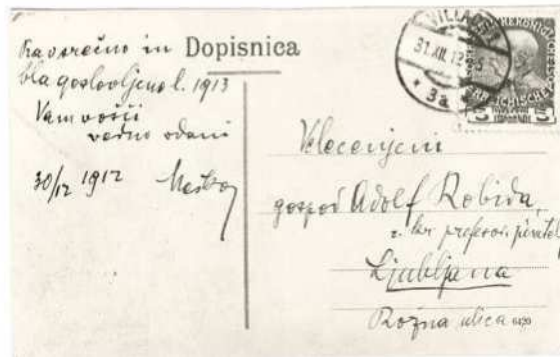 Dopisnica
Prav srečno in
blagoslovljeno l. 1913
Vam vošči
vedno vdani
30/12 1912 Meško
VILLACH
31.XII.12
* 3a
Velecenjeni
gospod Adolf Robida,
profesor, pisatelj
Ljubljana
Rožna ulica